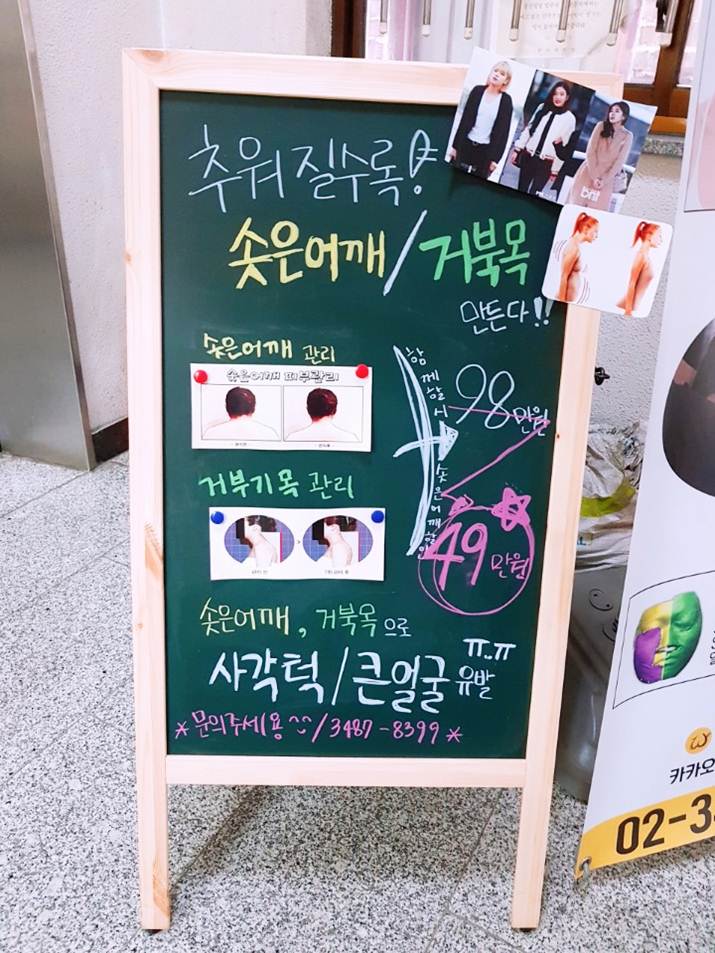 추워질수록!
솟은어깨/거북목
만든다!!
솟은어깨 관리
솟은어깨 피부관리
함께할시 솟은어깨할인
98만원
거부기목 관리
49만원
솟은어깨, 거북목으로
사각턱/큰얼굴 유발 ㅠ..ㅠ
*문의주세용^^/3487-8399*
카카오
02-3